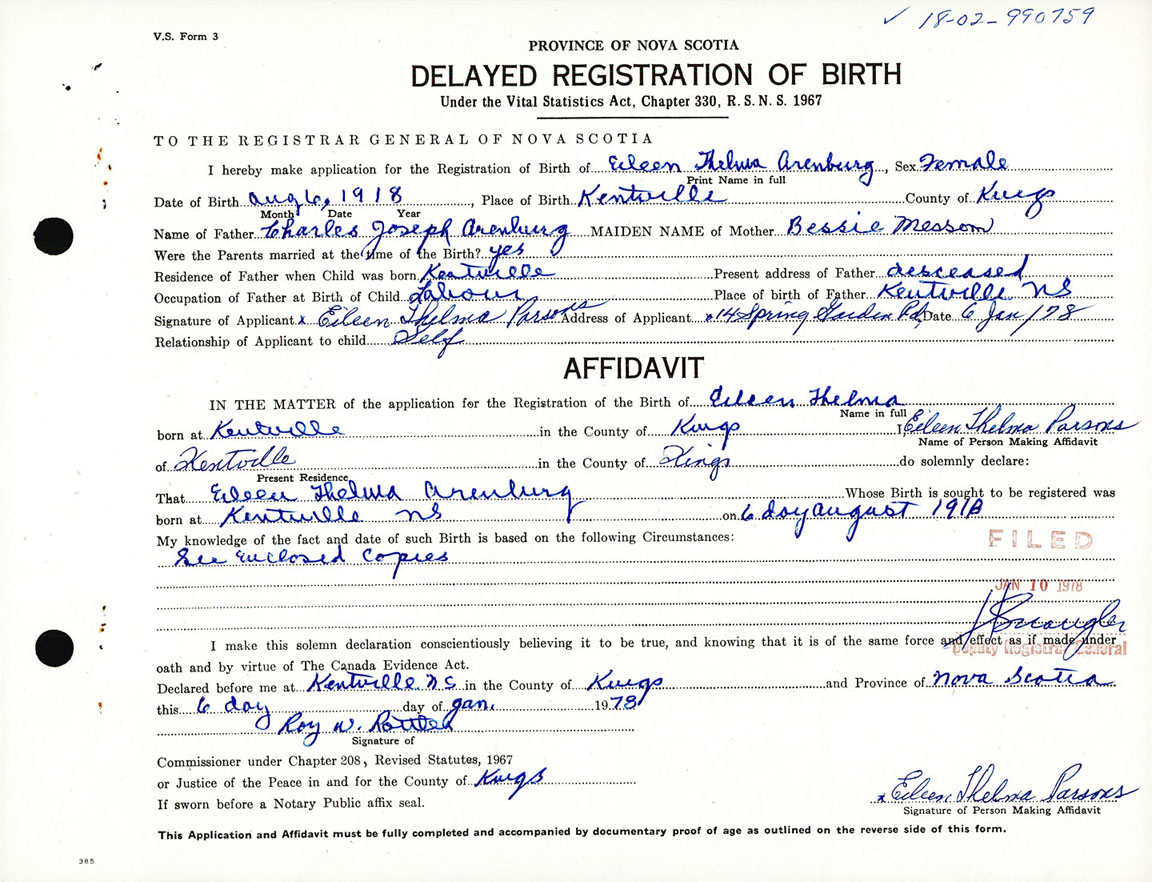 ✓ 18-02-990759
V.S. Form 3
PROVINCE OF NOVA SCOTIA
DELAYED REGISTRATION OF BIRTH
Under the Vital Statistics Act, Chapter 330, R.S.N.S. 1967
TO THE REGISTRAR GENERAL OF NOVA SCOTIA
I hereby make application for the Registration of Birth of Eileen Thelma Arenburg, Sex Female
Print Name in full
Date of Birth Aug 6, 1918, Place of Birth Kentville County of Kings
Month Date Year
Name of Father Charles Joseph Arenburg MAIDEN NAME of Mother Bessie Messom
Were the Parents married at the time of the Birth? yes
Residence of Father when Child was born Kentville Present address of Father desceased
Occupation of Father at Birth of Child Labour Place of birth of Father Kentville NS
Signature of Applicant x Eileen Thelma Parsons Address of Applicant x 14 Spring Garden Rd Date 6 Jan/78
Relationship of Applicant to child Self
AFFIDAVIT
IN THE MATTER of the application for the Registration of the Birth of Eileen Thelma
Name in full
born at Kentville in the County of Kings I Eileen Thelma Parsons
Name of Person Making Affidavit
of Kentville in the County of Kings do solemnly declare:
Present Residence
That Eileen Thelma Arenburg Whose Birth is sought to be registered was
born at Kentville NS on 6 day August 1918
My knowledge of the fact and date of such Birth is based on the following Circumstances:
See Enclosed Copies
FILED
JAN 10 1978
I make this solemn declaration conscientiously believing it to be true, and knowing that it is of the same force and effect as if made under
Deputy Registrar General
oath and by virtue of The Canada Evidence Act.
Declared before me at Kentville NS in the County of Kings and Province of Nova Scotia
this 6 day day of Jan. 1978
Roy W.
Signature of
Commissioner under Chapter 208, Revised Statutes, 1967
or Justice of the Peace in and for the County of Kings
If sworn before a Notary Public affix seal.
x Eileen Thelma Parsons
Signature of Person Making Affidavit
This Application and Affidavit must be fully completed and accompanied by documentary proof of age as outlined on the reverse side of this form.
385